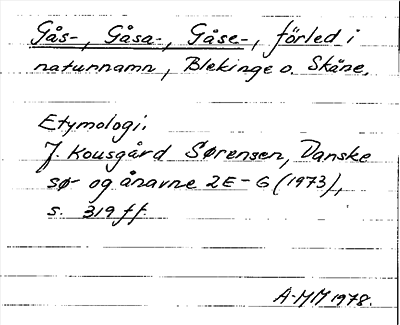 Gås-, Gåsa-, Gåse-, förled i
naturnamn, Blekinge o. Skåne.
Etymologi.
J. Kousgård Sørensen, Danske
sø- og ånavne 2E-G (1973),
s. 319 ff.
A-MM 1978.